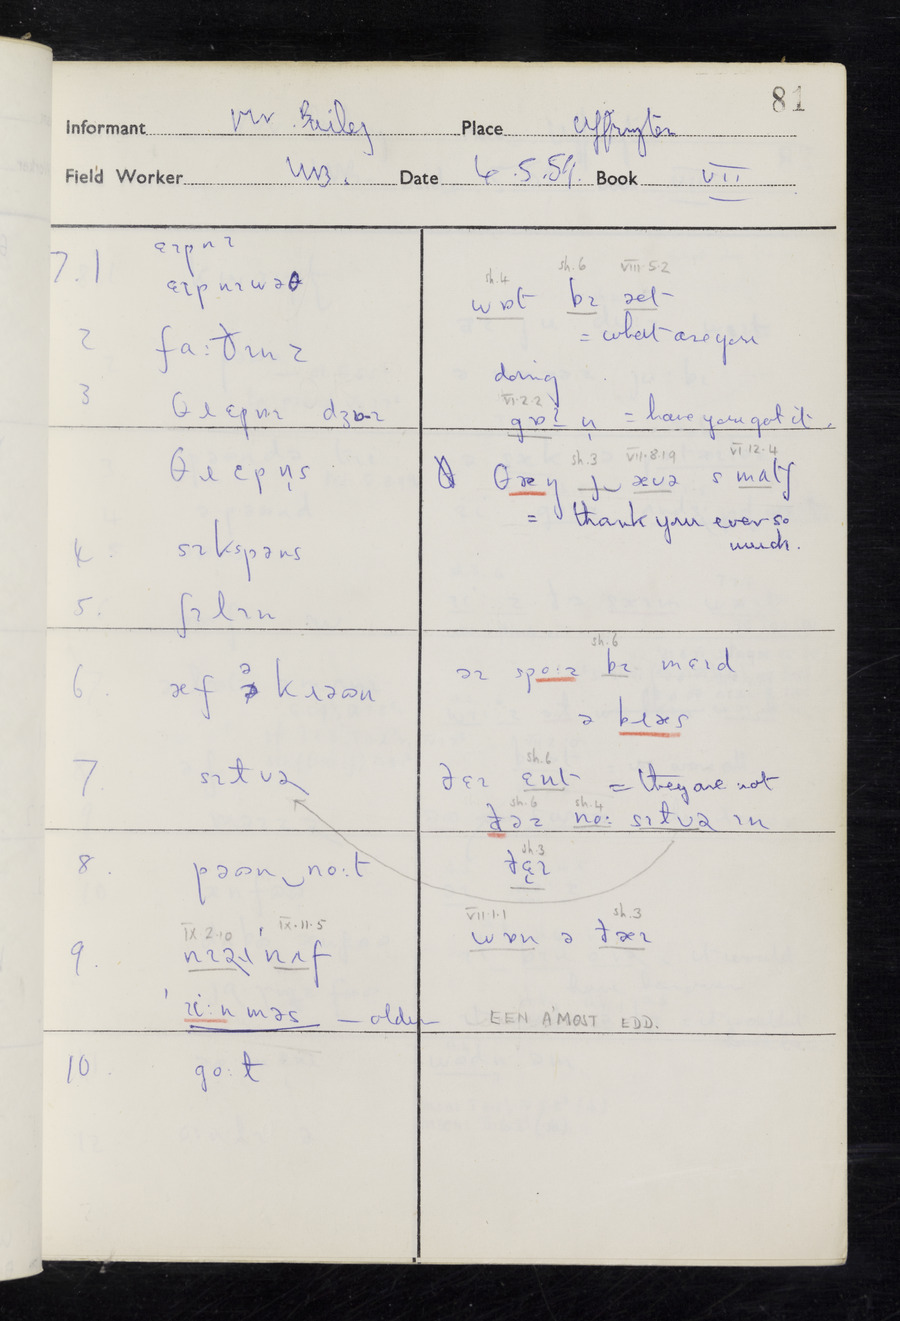 81
Informant Mr Bailey Place Uffington
Field Worker Date 6.5.59. Book VII
7.1 ɛɪpnɪ
ɛɪpnɪwəθ
sh.4 sh.6 VIII.5.2
wɒt bɪ ət
= what are you
doing
2 fa:ðɪnɪ
3 θɹɛpnɪ
VI.2.2
= have you got it.
θɹɛpn̩s
sh.3 VII.8.19 VI 12.4
= thank you ever so
much.
4. sɪkspəns
5. ʃɪlɪn
sh.6
6. æf ə kɹəʊn
bɪ mɛɪd
ə bɹæs
7 sɪtvə
sh.6
ðɛɪ ɛnt = they are not
sh.6 sh.4
ðəɪ no: sɪtvə ɪn
sh.3
ðɛɪ
8. pəʊn‿no:t
VII.1.1 sh.3
wɒn ə ðæɪ
IX 2.10 IX.11.5
9. nɪəɹ nʌf
ɹi:n məs — older EEN A'MOST EDD.
10. go:t